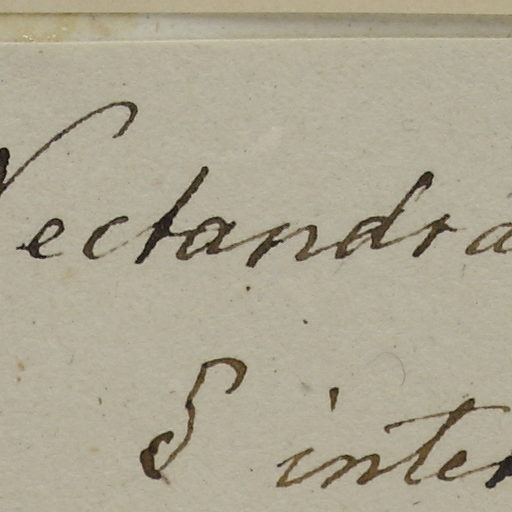 Nectandra
δ inter